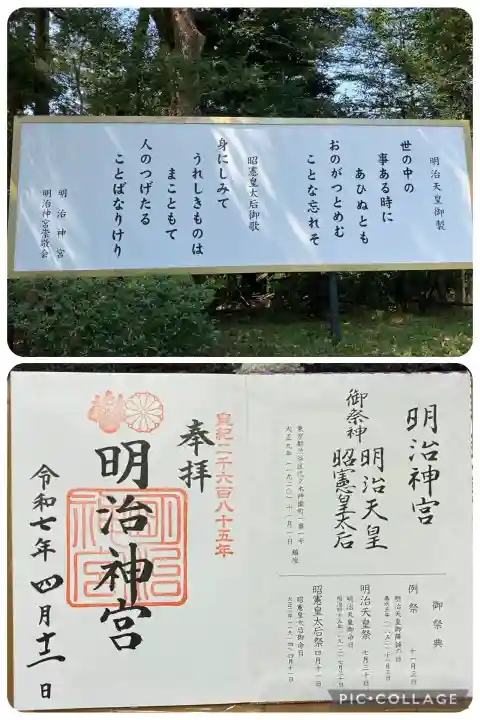 明治天皇御製
世の中の
事ある時に
あひぬとも
おのがつとめむ
ことな忘れそ
昭憲皇太后御歌
身にしみて
うれしきものは
まこともて
人のつげたる
ことばなりけり
明治神宮
明治神宮崇敬会
明治神宮
御祭神
明治天皇
昭憲皇太后
東京都渋谷区代々木神園町一番一号
大正九年(一九二〇)十一月一日 鎮座
御祭典
例祭 十一月三日
明治天皇御降誕の日
嘉永五年(一八五二)十一月三日
明治天皇祭 七月三十日
明治天皇御命日
明治四十五年(一九一二)七月三十日
昭憲皇太后祭 四月十一日
昭憲皇太后御命日
大正三年(一九一四)四月十一日
皇紀二千六百八十五年
奉拝
明治神宮
令和七年 四月十二日
PIC・COLLAGE